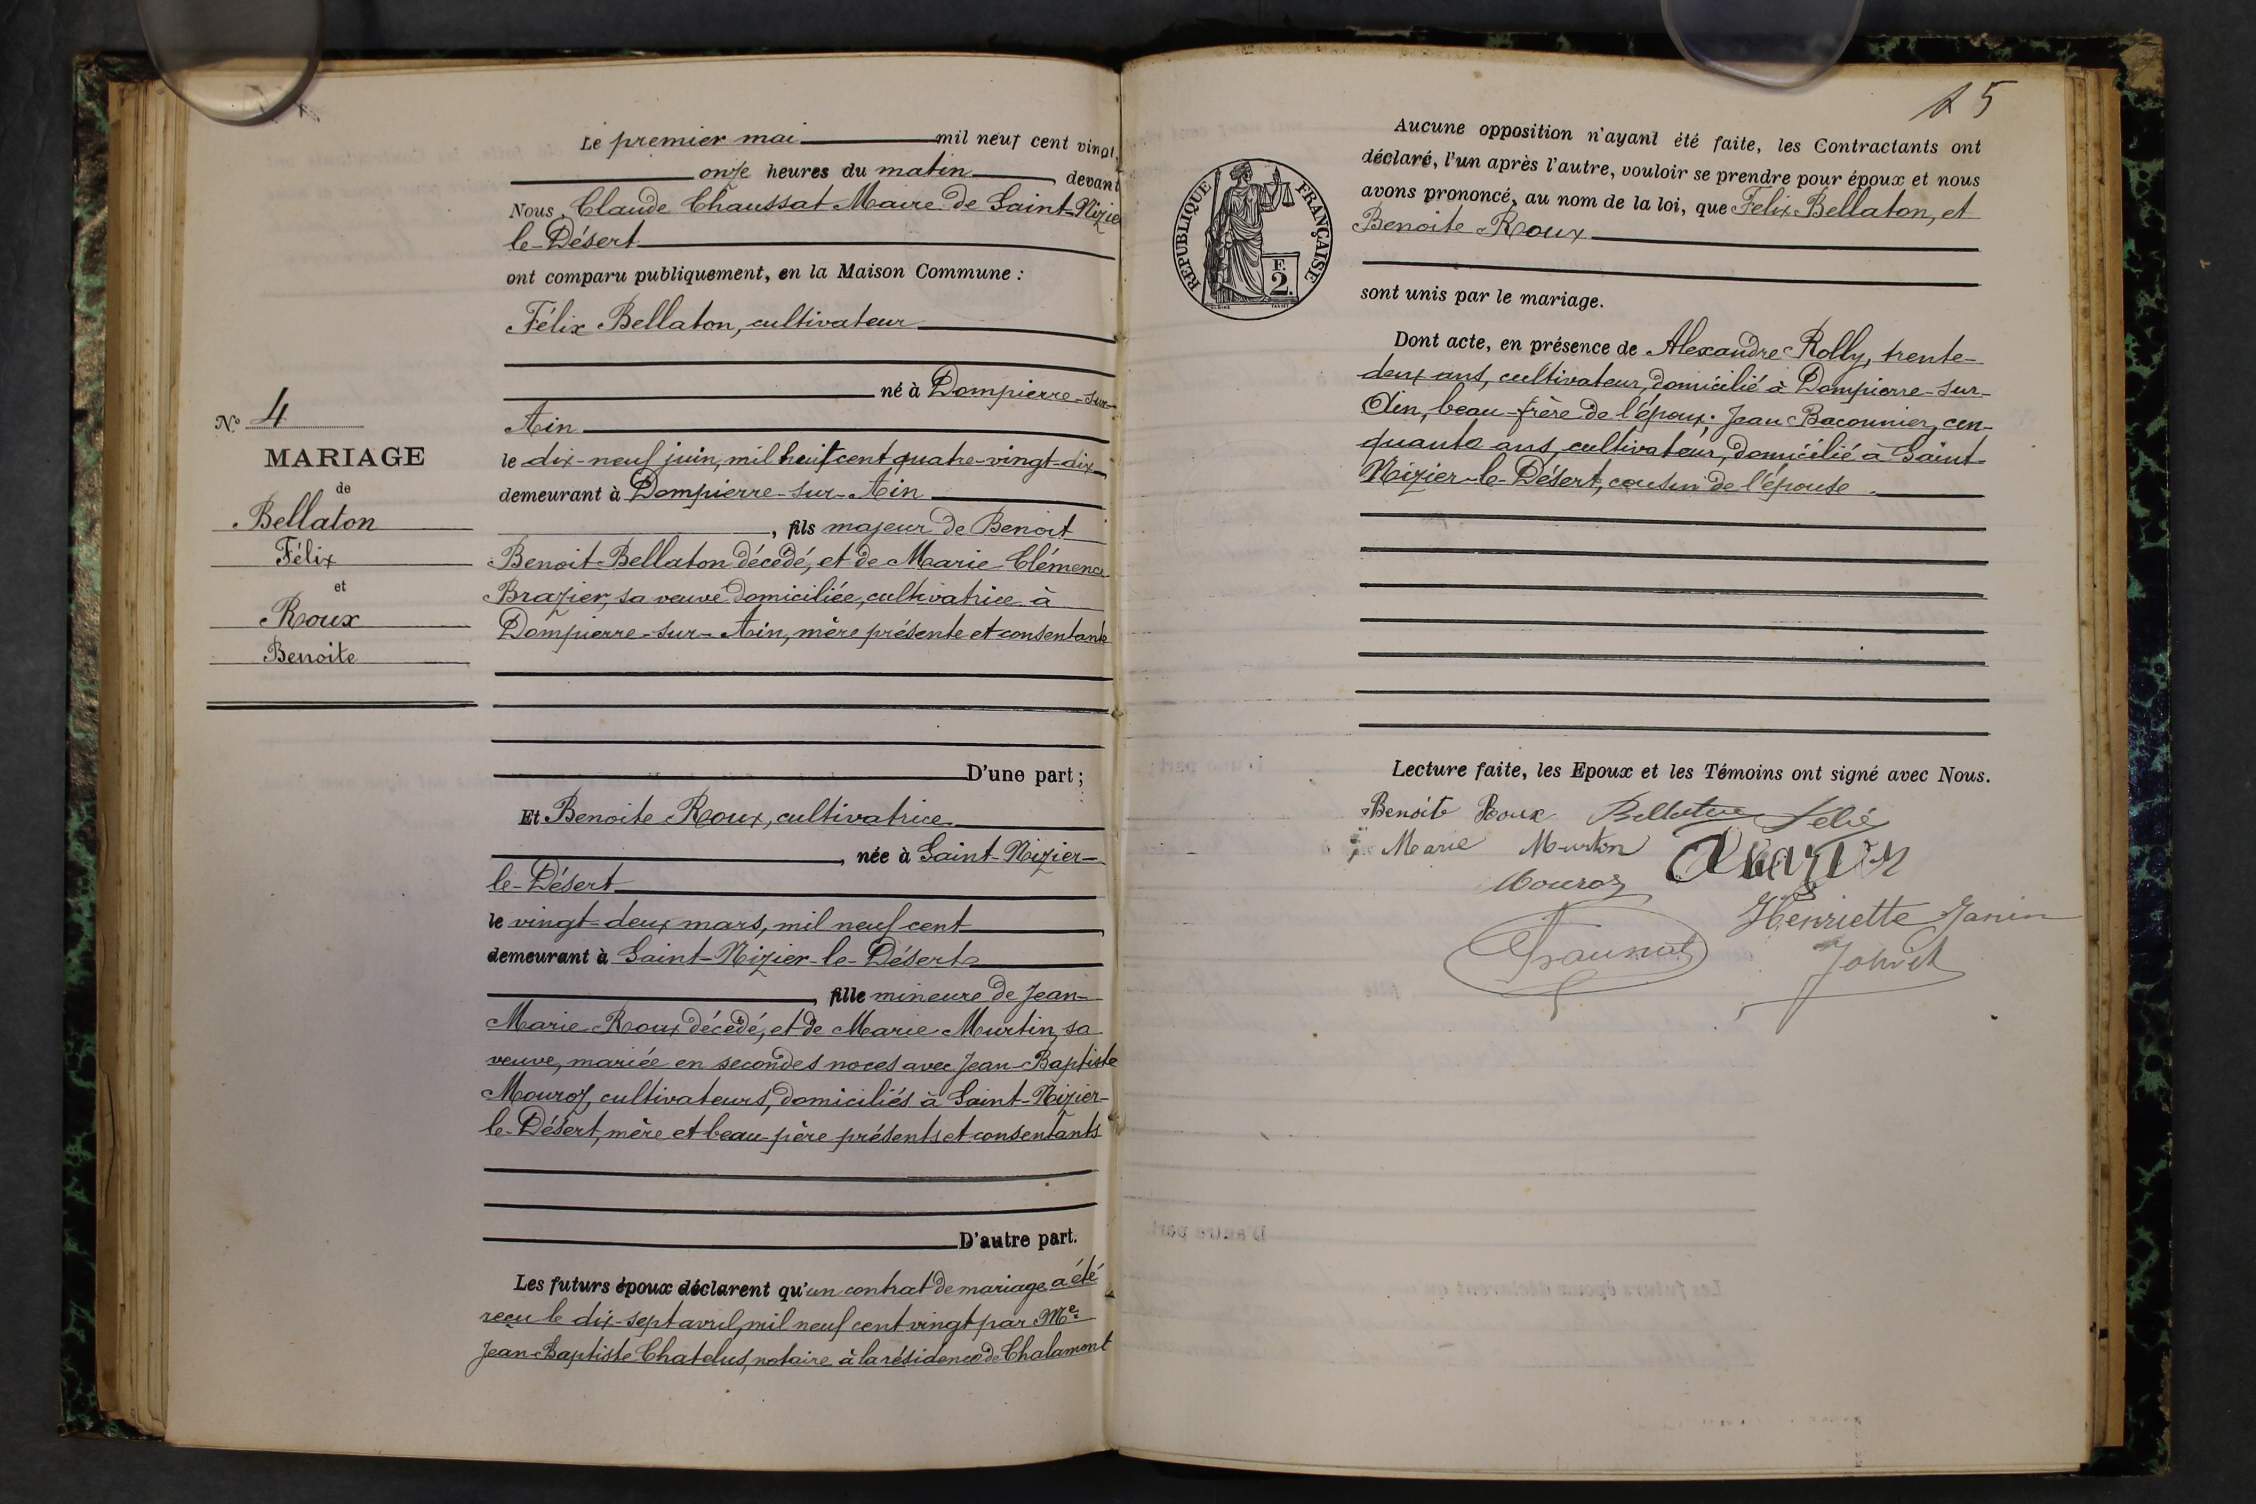 Le premier mai mil neuf cent vingt,
onze heures du matin, devant
Nous, Claude Chaussat Maire de Saint-Nizier
le-Désert
ont comparu publiquement, en la Maison Commune :
Félix Bellaton, cultivateur
né à Dompierre-sur-
Ain
le dix-neuf juin, mil huit cent quatre-vingt-dix,
demeurant à Dompierre-sur-Ain
, fils majeur de Benoit
Benoit Bellaton décédé, et de Marie Clémence
Brazier, sa veuve domiciliée, cultivatrice à
Dompierre-sur-Ain, mère présente et consentante
D'une part ;
Et Benoite Roux, cultivatrice
, née à Saint-Nizier-
le-Désert
le vingt-deux mars, mil neuf cent,
demeurant à Saint-Nizier-le-Désert
, fille mineure de Jean-
Marie Roux décédé, et de Marie Murtin, sa
veuve, mariée en secondes noces avec Jean-Baptiste
Mouroz, cultivateurs, domiciliés à Saint-Nizier-
le-Désert, mère et beau-père présents et consentants
D'autre part.
Les futurs époux déclarent qu'un contrat de mariage a été
reçu le dix-sept avril, mil neuf cent vingt par Me
Jean-Baptiste Chatelus, notaire à la résidence de Chalamont
No 4
MARIAGE
de
Bellaton
Félix
et
Roux
Benoite
5
REPUBLIQUE FRANÇAISE
F.
2.
Aucune opposition n'ayant été faite, les Contractants ont
déclaré, l'un après l'autre, vouloir se prendre pour époux et nous
avons prononcé, au nom de la loi, que Félix Bellaton, et
Benoite Roux
sont unis par le mariage.
Dont acte, en présence de Alexandre Rolly, trente-
deux ans, cultivateur, domicilié à Dompierre-sur-
Ain, beau-frère de l'époux. Jean Baconnier, cin-
quante ans, cultivateur, domicilié à Saint-
Nizier-le-Désert, cousin de l'épouse.
Lecture faite, les Epoux et les Témoins ont signé avec Nous.
Benoite Roux Bellaton Félix
Marie Murton
Mouroz
Henriette Janin